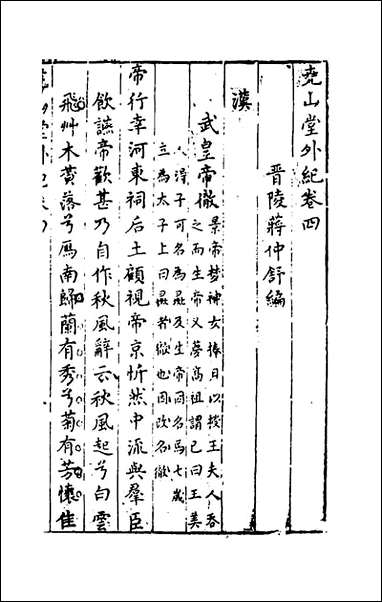 堯山堂外紀卷四
晋陵蔣仲舒編
漢
武皇帝徹
景帝夢神女捧日以授王夫人吞
之而生帝又夢高祖謂己曰王美
人得子可名為彘及生帝因名焉七歲
立為太子上曰彘者徹也因改名徹
帝行幸河東祠后土顧視帝京忻然中流與羣臣
飲讌帝歡甚乃自作秋風辭云秋風起兮白雲
飛艸木黃落兮鴈南歸蘭有秀兮菊有芳懷佳